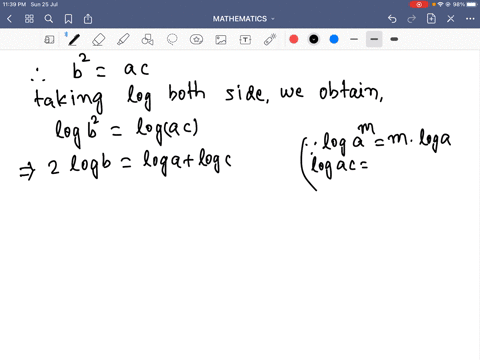 11:39 PM Sun 25 Jul
98%
MATHEMATICS
∴ b² = ac
taking log both side, we obtain,
log b² = log(ac)
⇒ 2 log b = log a + log c
(∵ log a^m = m · log a
log ac =